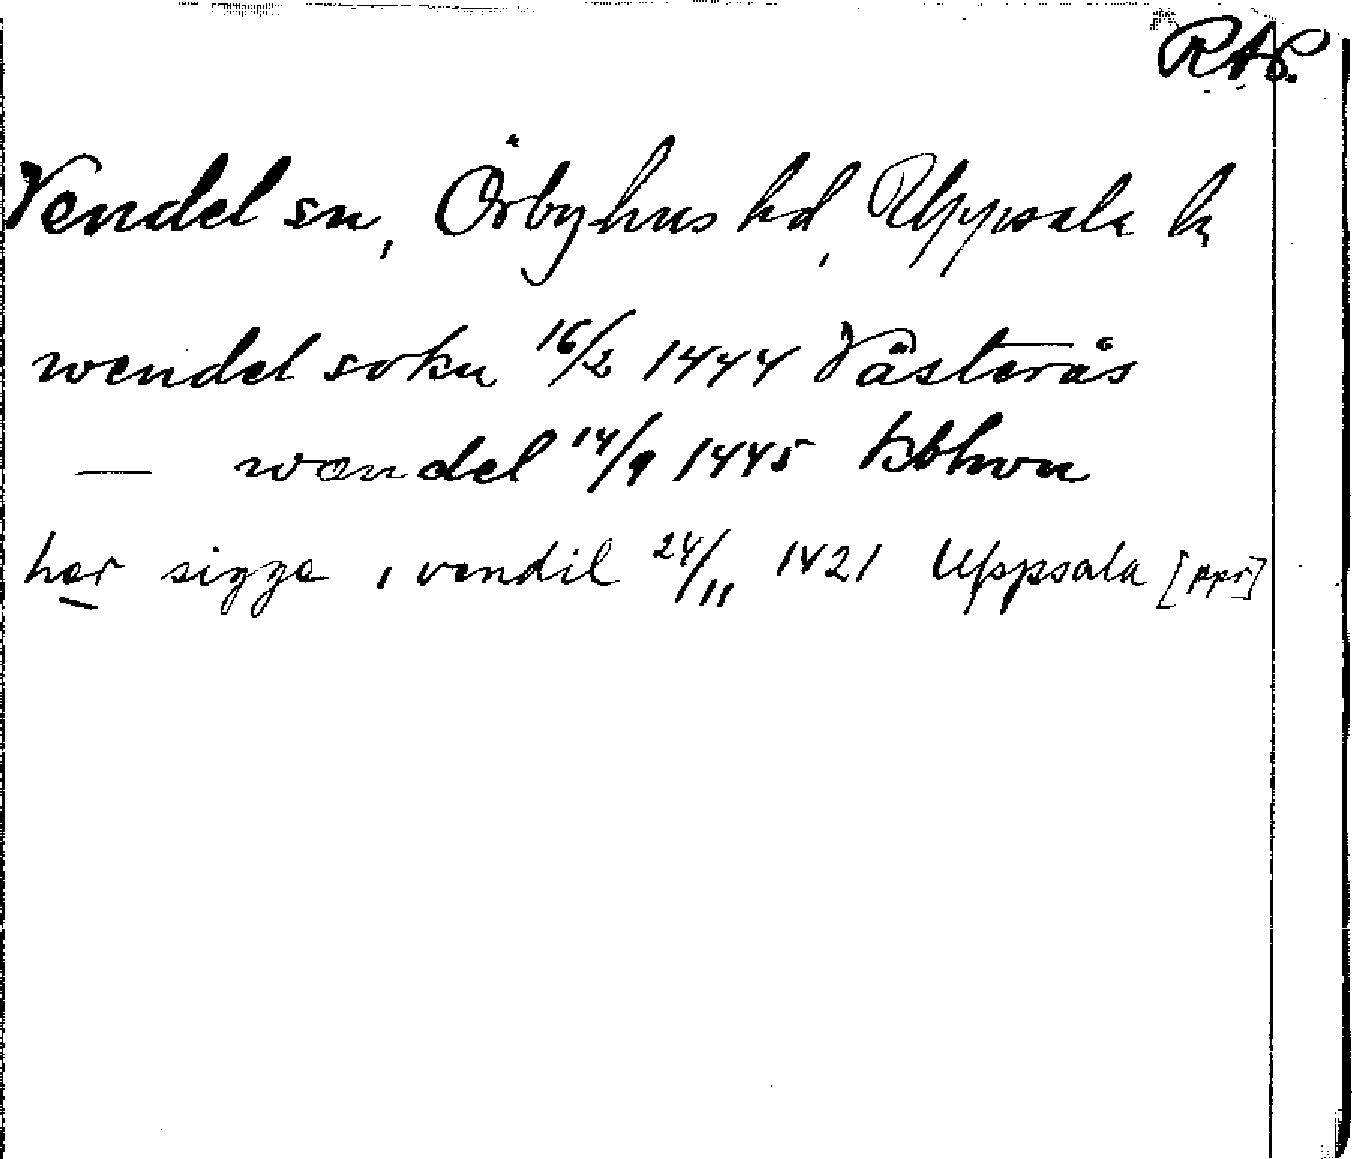 RAP.
Vendel sn, Örbyhus hd, Uppsala l.
wendel sokn 16/2 1444 Västerås
— wændel 14/9 1445 Kbhvn
her sigge i vendil 24/11 1421 Uppsala [ppr]